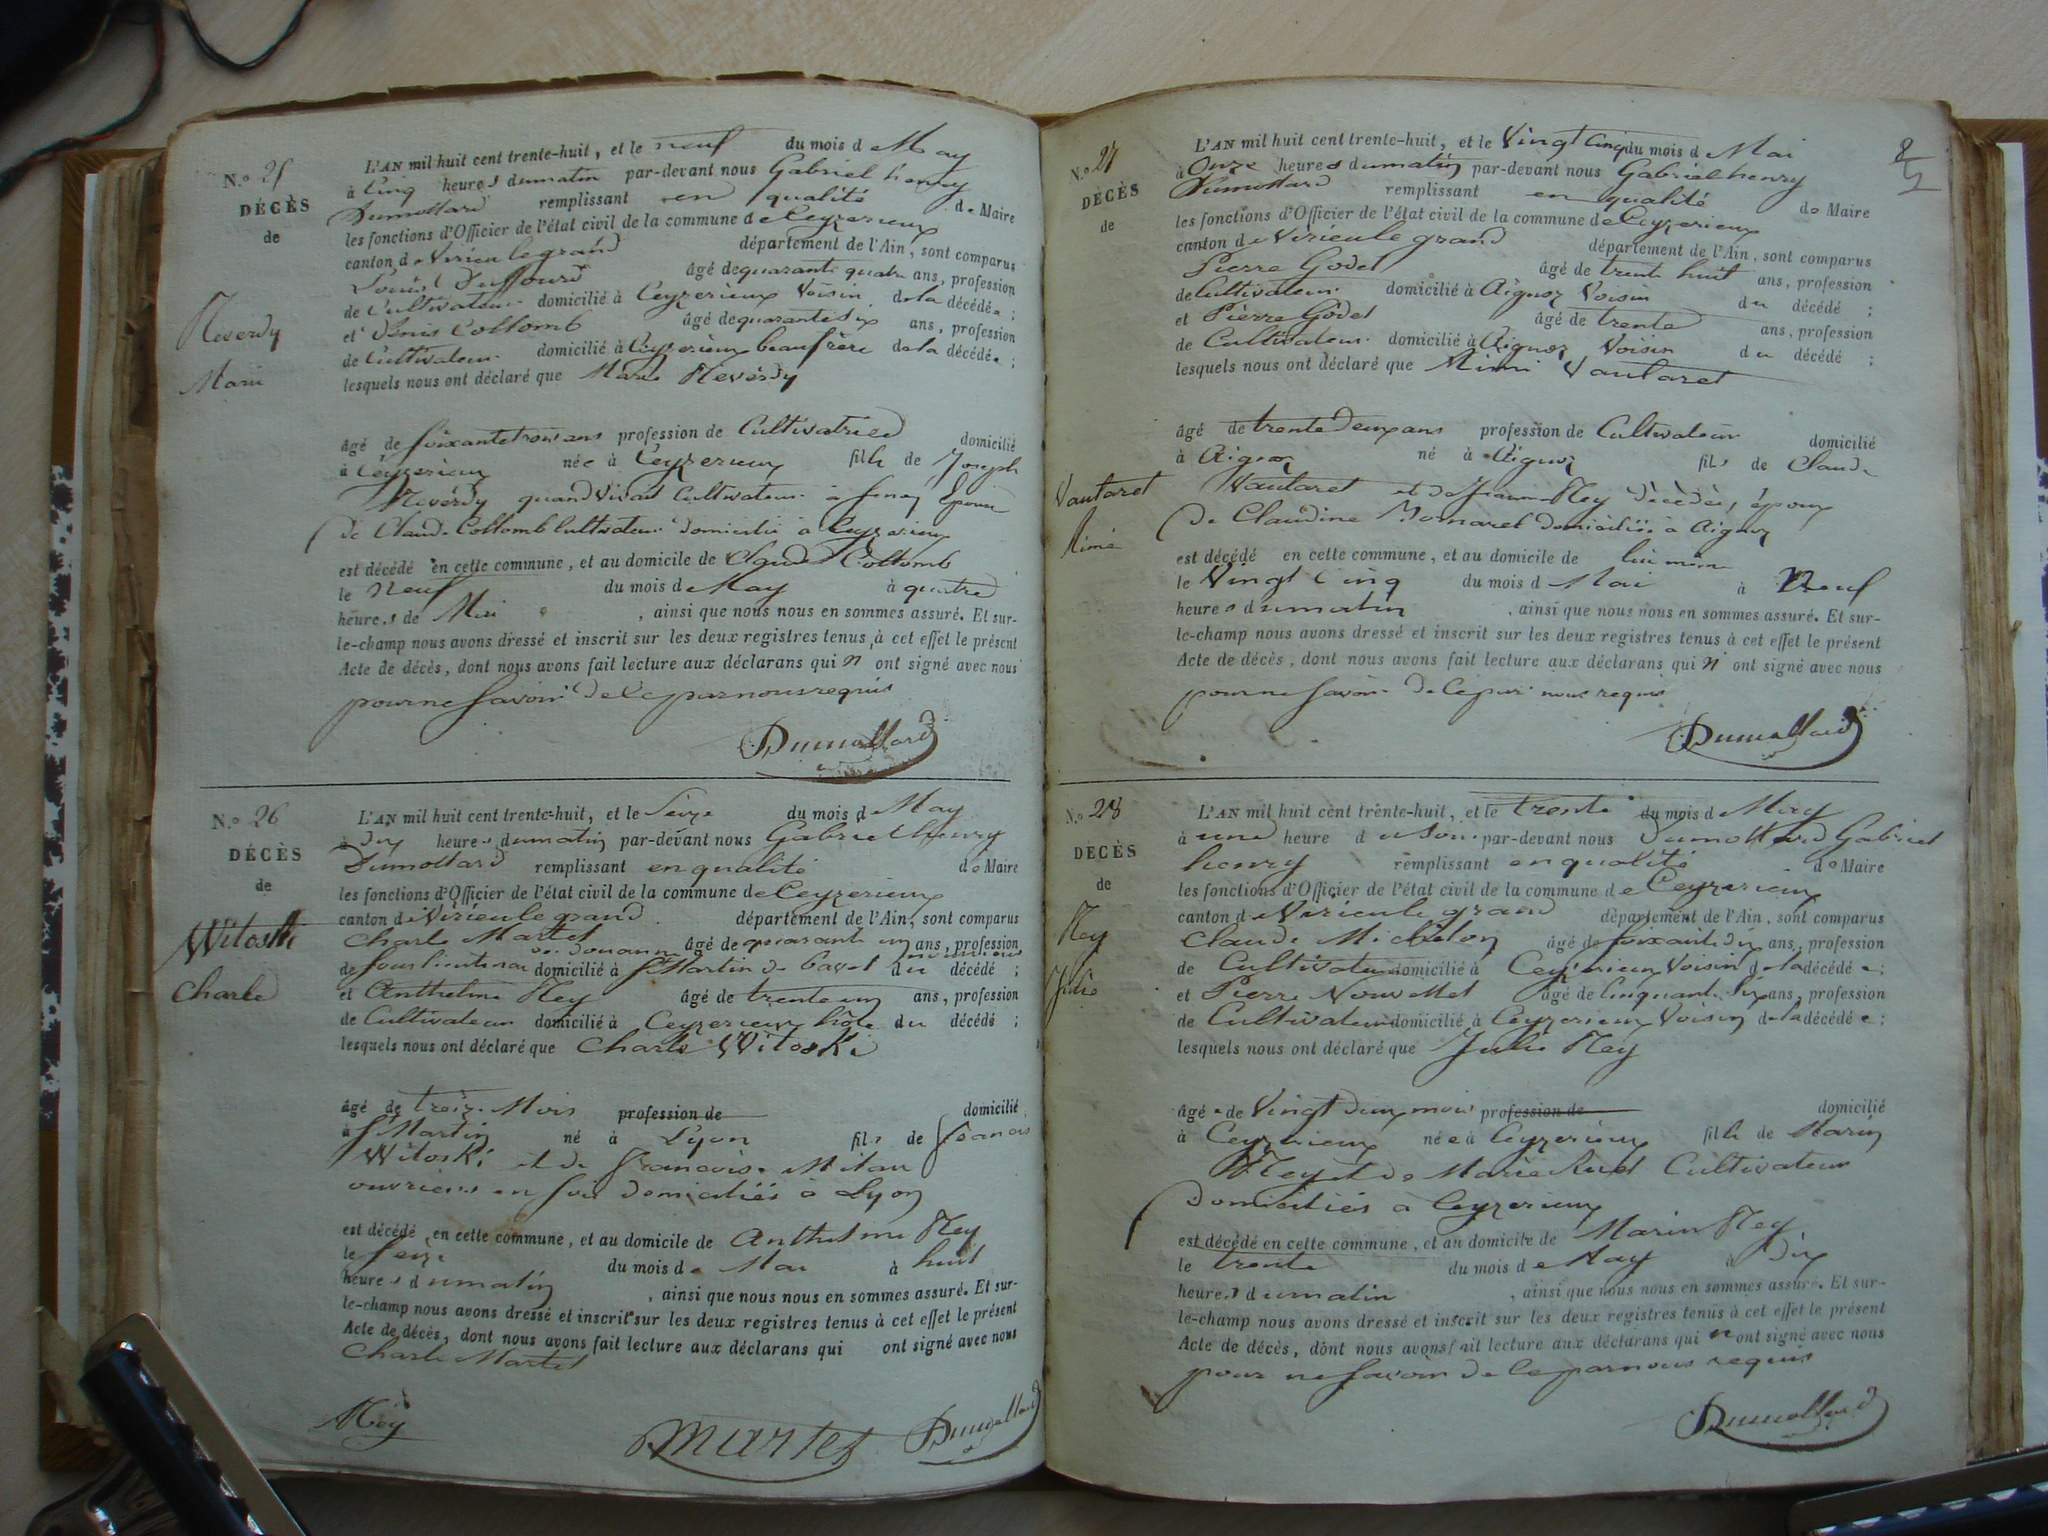 N.o 25
DÉCÈS
de
Reverdy
Marie
L'AN mil huit cent trente-huit, et le neuf du mois d May
à Cinq heures dumatin par-devant nous Gabriel henry
Dumollard remplissant en qualité de Maire
les fonctions d'Officier de l'état civil de la commune de Ceyzerieux
canton de Virieulegrand département de l'Ain, sont comparus
Louis Duffourd âgé dequarante quatre ans, profession
de Cultivateur domicilié à Ceyzerieux Voisin dela décédée ;
et Denis Collomb âgé dequarantesix ans, profession
de Cultivateur domicilié à Ceyzerieux beaufrère dela décédée ;
lesquels nous ont déclaré que Marie Reverdy
âgé de soixantetrois ans profession de Cultivatrice domicilié
à Ceyzerieux née à Ceyzerieux fille de Joseph
Reverdy quand vivait Cultivateur à Epouse
de Claude Collomb Cultivateur domicilié à Ceyzerieux
est décédé en cette commune, et au domicile de Claude Collomb
le Neuf du mois d May à quatre
heures de , ainsi que nous nous en sommes assuré. Et sur-
le-champ nous avons dressé et inscrit sur les deux registres tenus à cet effet le présent
Acte de décès, dont nous avons fait lecture aux déclarans qui n ont signé avec nous
pour ne savoir de le par nous requis
Dumollard
N.o 26
DÉCÈS
de
Witoski
Charle
L'AN mil huit cent trente-huit, et le Seize du mois d May
à Dix heures dumatin par-devant nous Gabriel henry
Dumollard remplissant en qualité de Maire
les fonctions d'Officier de l'état civil de la commune de Ceyzerieux
canton de Virieulegrand département de l'Ain, sont comparus
Charle Martel âgé de quarante un ans, profession
de souslieutenant de douanne domicilié à St Martin de Bavel du décédé ;
et Anthelme Rey âgé de trente un ans, profession
de Cultivateur domicilié à Ceyzerieux hôte du décédé ;
lesquels nous ont déclaré que Charle Witoski
âgé de treize Mois profession de domicilié
à St Martin né à Lyon fils de francois
Witoski et de francoise Milan
ouvriers en soie domiciliés à Lyon
est décédé en cette commune, et au domicile de Anthelme Rey
le seize du mois de Mai à huit
heures dumatin , ainsi que nous nous en sommes assuré. Et sur-
le-champ nous avons dressé et inscrit sur les deux registres tenus à cet effet le présent
Acte de décès, dont nous avons fait lecture aux déclarans qui ont signé avec nous
Charle Martel
Rey Martel Dumollard
N.o 27
DÉCÈS
de
Vautaret
Mimi
L'AN mil huit cent trente-huit, et le Vingt Cinq du mois d Mai
à Onze heures dumatin par-devant nous Gabriel henry
Dumollard remplissant en qualité de Maire
les fonctions d'Officier de l'état civil de la commune de Ceyzerieux
canton de Virieulegrand département de l'Ain, sont comparus
Pierre Godet âgé de trente huit ans, profession
de Cultivateur domicilié à Aignoz Voisin du décédé ;
et Pierre Godet âgé de trente ans, profession
de Cultivateur domicilié à Aignoz Voisin du décédé ;
lesquels nous ont déclaré que Mimi Vautaret
âgé de trente Deux ans profession de Cultivateur domicilié
à Aignoz né à Aignoz fils de Claude
Vautaret et de Jeanne Rey décédés, époux
de Claudine domiciliée à Aignoz
est décédé en cette commune, et au domicile de lui même
le Vingt Cinq du mois d Mai à Neuf
heures dumatin , ainsi que nous nous en sommes assuré. Et sur-
le-champ nous avons dressé et inscrit sur les deux registres tenus à cet effet le présent
Acte de décès, dont nous avons fait lecture aux déclarans qui n' ont signé avec nous
pour ne savoir de le par nous requis
Dumollard
N.o 28
DÉCÈS
de
Rey
Julie
L'AN mil huit cent trente-huit, et le trente du mois d May
à une heure du Soir par-devant nous Dumollard Gabriel
henry remplissant en qualité de Maire
les fonctions d'Officier de l'état civil de la commune de Ceyzerieux
canton de Virieulegrand département de l'Ain, sont comparus
Claude Michelon âgé de soixante dix ans, profession
de Cultivateur domicilié à Ceyzerieux Voisin de la décédée ;
et Pierre Nouvellet âgé de Cinquante Six ans, profession
de Cultivateur domicilié à Ceyzerieux Voisin de la décédée ;
lesquels nous ont déclaré que Julie Rey
âgée de Vingt deux mois profession de domicilié
à Ceyzerieux née à Ceyzerieux fille de Marin
Rey et de Marie Cultivateurs
domiciliés à Ceyzerieux
est décédé en cette commune, et au domicile de Marin Rey
le trente du mois de May à Dix
heures dumatin , ainsi que nous nous en sommes assuré. Et sur-
le-champ nous avons dressé et inscrit sur les deux registres tenus à cet effet le présent
Acte de décès, dont nous avons fait lecture aux déclarans qui n ont signé avec nous
pour ne savoir de le par nous requis
Dumollard